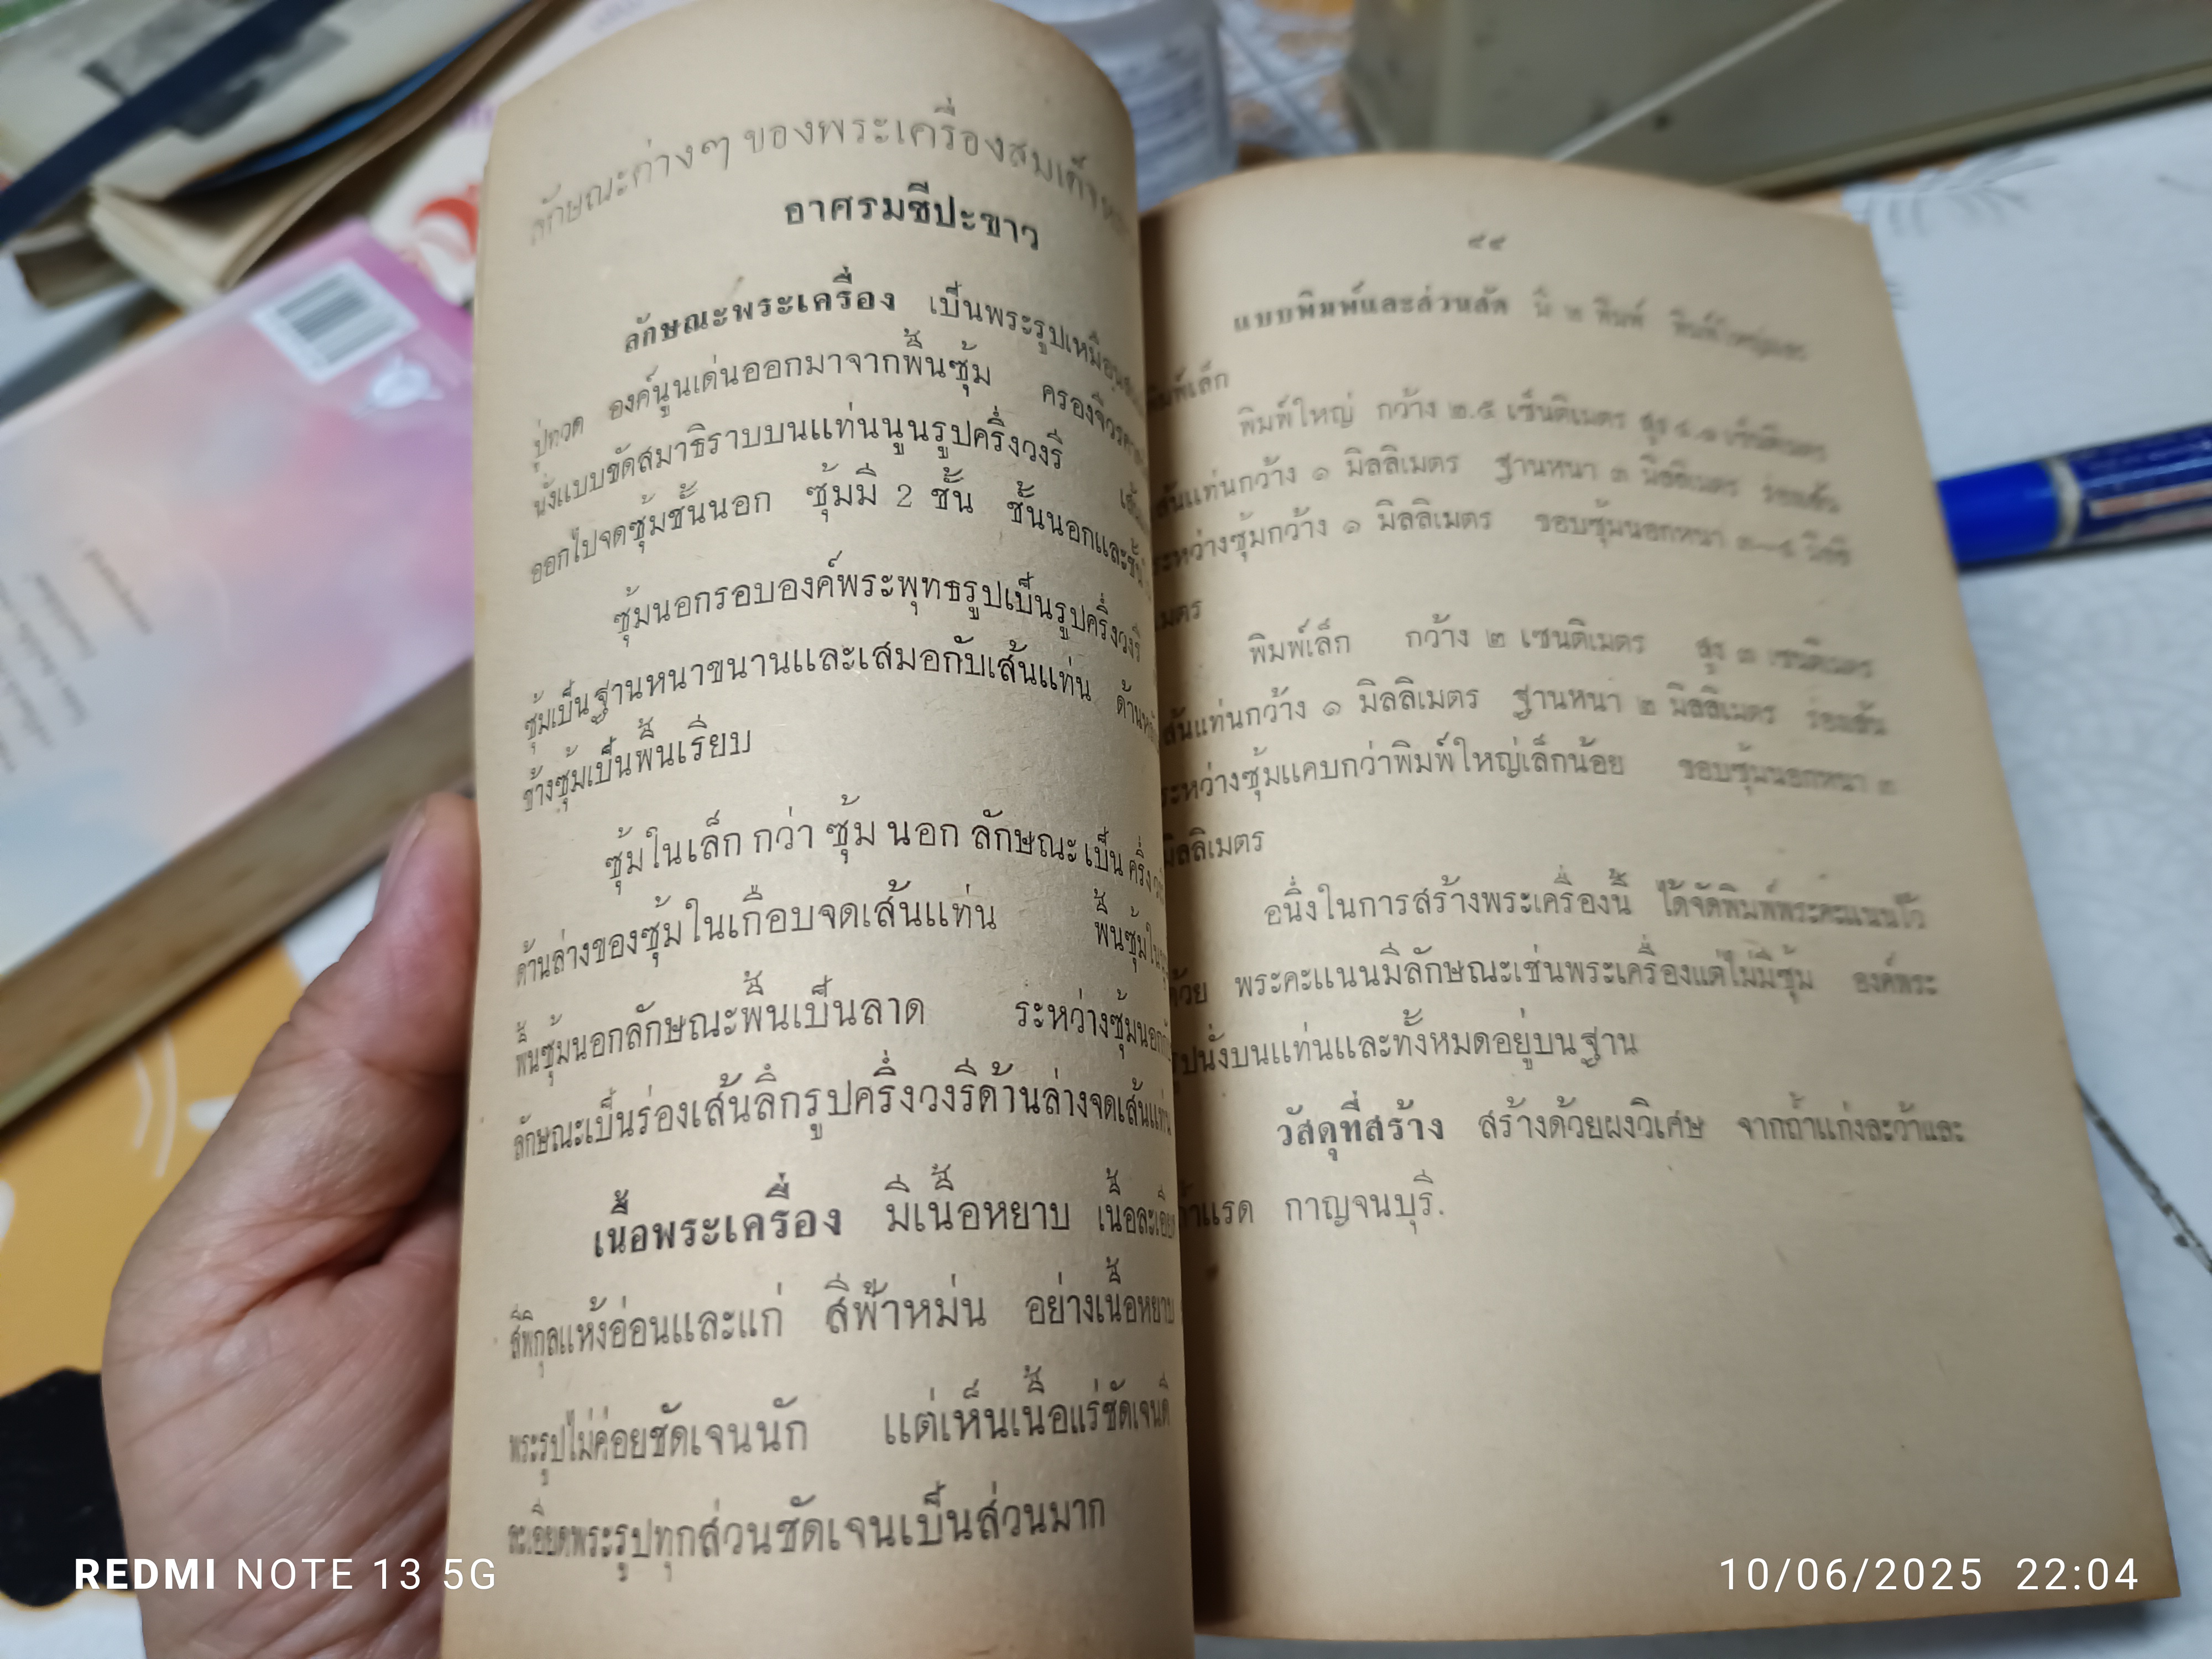 ลักษณะต่างๆ ของพระเครื่องสมเด็จ
อาศรมชีปะขาว
ลักษณะพระเครื่อง เป็นพระรูปเหมือน
ปู่ทวด องค์นูนเด่นออกมาจากพื้นซุ้ม ครองจีวร
นั่งแบบขัดสมาธิราบบนแท่นนูนรูปครึ่งวงรี เส้น
ออกไปจดซุ้มชั้นนอก ซุ้มมี 2 ชั้น ชั้นนอกและชั้น
ซุ้มนอกรอบองค์พระพุทธรูปเป็นรูปครึ่งวงรี
ซุ้มเป็นฐานหนาขนานและเสมอกับเส้นแท่น
ข้างซุ้มเป็นพื้นเรียบ
ซุ้มในเล็กกว่าซุ้มนอก ลักษณะเป็นครึ่ง
ด้านล่างของซุ้มในเกือบจดเส้นแท่น พื้นซุ้มใน
พื้นซุ้มนอกลักษณะพื้นเป็นลาด ระหว่างซุ้มนอก
ลักษณะเป็นร่องเส้นลึกรูปครึ่งวงรีด้านล่างจดเส้นแท่น
เนื้อพระเครื่อง มีเนื้อหยาบ เนื้อละเอียด
สีพิกุลแห้งอ่อนและแก่ สีฟ้าหม่น อย่างเนื้อหยาบ
พระรูปไม่ค่อยชัดเจนนัก แต่เห็นเนื้อแร่ชัดเจนดี
ละเอียดพระรูปทุกส่วนชัดเจนเป็นส่วนมาก
แบบพิมพ์และส่วนสัด มี ๒ พิมพ์
พิมพ์เล็ก
พิมพ์ใหญ่ กว้าง ๒.๕ เซ็นติเมตร สูง เซ็นติเมตร
เส้นแท่นกว้าง ๑ มิลลิเมตร ฐานหนา ๓ มิลลิเมตร ร่องเส้น
ระหว่างซุ้มกว้าง ๑ มิลลิเมตร ขอบซุ้มนอกหนา
เมตร
พิมพ์เล็ก กว้าง ๒ เซนติเมตร สูง ๓ เซนติเมตร
เส้นแท่นกว้าง ๑ มิลลิเมตร ฐานหนา ๒ มิลลิเมตร ร่องเส้น
ระหว่างซุ้มแคบกว่าพิมพ์ใหญ่เล็กน้อย ขอบซุ้มนอกหนา ๓
มิลลิเมตร
อนึ่งในการสร้างพระเครื่องนี้ ได้จัดพิมพ์พระคะแนนไว้
ด้วย พระคะแนนมีลักษณะเช่นพระเครื่องแต่ไม่มีซุ้ม องค์พระ
รูปนั่งบนแท่นและทั้งหมดอยู่บนฐาน
วัสดุที่สร้าง สร้างด้วยผงวิเศษ จากถ้ำแก่งละว้าและ
ถ้ำแรด กาญจนบุรี.
REDMI NOTE 13 5G
10/06/2025 22:04